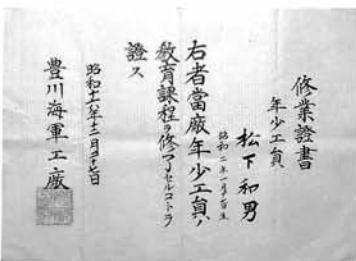 修業證書
年少工員
松下和男
昭和二年一月
右者當廠年少工員ノ
敎育課程ヲ修了セルコトヲ
證ス
昭和十八年十二月二十七日
豊川海軍工廠